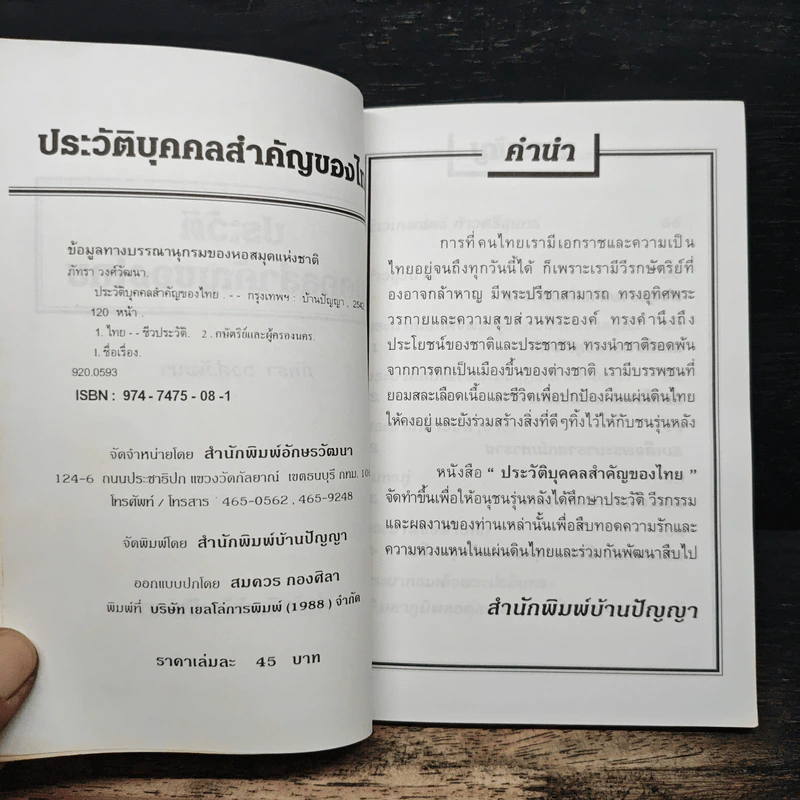 ประวัติบุคคลสำคัญของไทย
ข้อมูลทางบรรณานุกรมของหอสมุดแห่งชาติ
ภัทรา วงศ์วัฒนา.
ประวัติบุคคลสำคัญของไทย . - - กรุงเทพฯ : บ้านปัญญา , 2542.
120 หน้า .
1. ไทย - - ชีวประวัติ. 2 . กษัตริย์และผู้ครองนคร.
I. ชื่อเรื่อง.
920.0593
ISBN : 974 - 7475 - 08 - 1
จัดจำหน่ายโดย สำนักพิมพ์อักษรวัฒนา
124-6 ถนนประชาธิปก แขวงวัดกัลยาณ์ เขตธนบุรี กทม.
โทรศัพท์ / โทรสาร : 465-0562 , 465-9248
จัดพิมพ์โดย สำนักพิมพ์บ้านปัญญา
ออกแบบปกโดย สมควร กองศิลา
พิมพ์ที่ บริษัท เยลโล่การพิมพ์ (1988) จำกัด
ราคาเล่มละ 45 บาท
คำนำ
การที่คนไทยเรามีเอกราชและความเป็น
ไทยอยู่จนถึงทุกวันนี้ได้ ก็เพราะเรามีวีรกษัตริย์ที่
องอาจกล้าหาญ มีพระปรีชาสามารถ ทรงอุทิศพระ
วรกายและความสุขส่วนพระองค์ ทรงคำนึงถึง
ประโยชน์ของชาติและประชาชน ทรงนำชาติรอดพ้น
จากการตกเป็นเมืองขึ้นของต่างชาติ เรามีบรรพชนที่
ยอมสละเลือดเนื้อและชีวิตเพื่อปกป้องผืนแผ่นดินไทย
ให้คงอยู่ และยังร่วมสร้างสิ่งที่ดีๆทิ้งไว้ให้กับชนรุ่นหลัง
หนังสือ “ ประวัติบุคคลสำคัญของไทย ”
จัดทำขึ้นเพื่อให้อนุชนรุ่นหลังได้ศึกษาประวัติ วีรกรรม
และผลงานของท่านเหล่านั้นเพื่อสืบทอดความรักและ
ความหวงแหนในแผ่นดินไทยและร่วมกันพัฒนาสืบไป
สำนักพิมพ์บ้านปัญญา